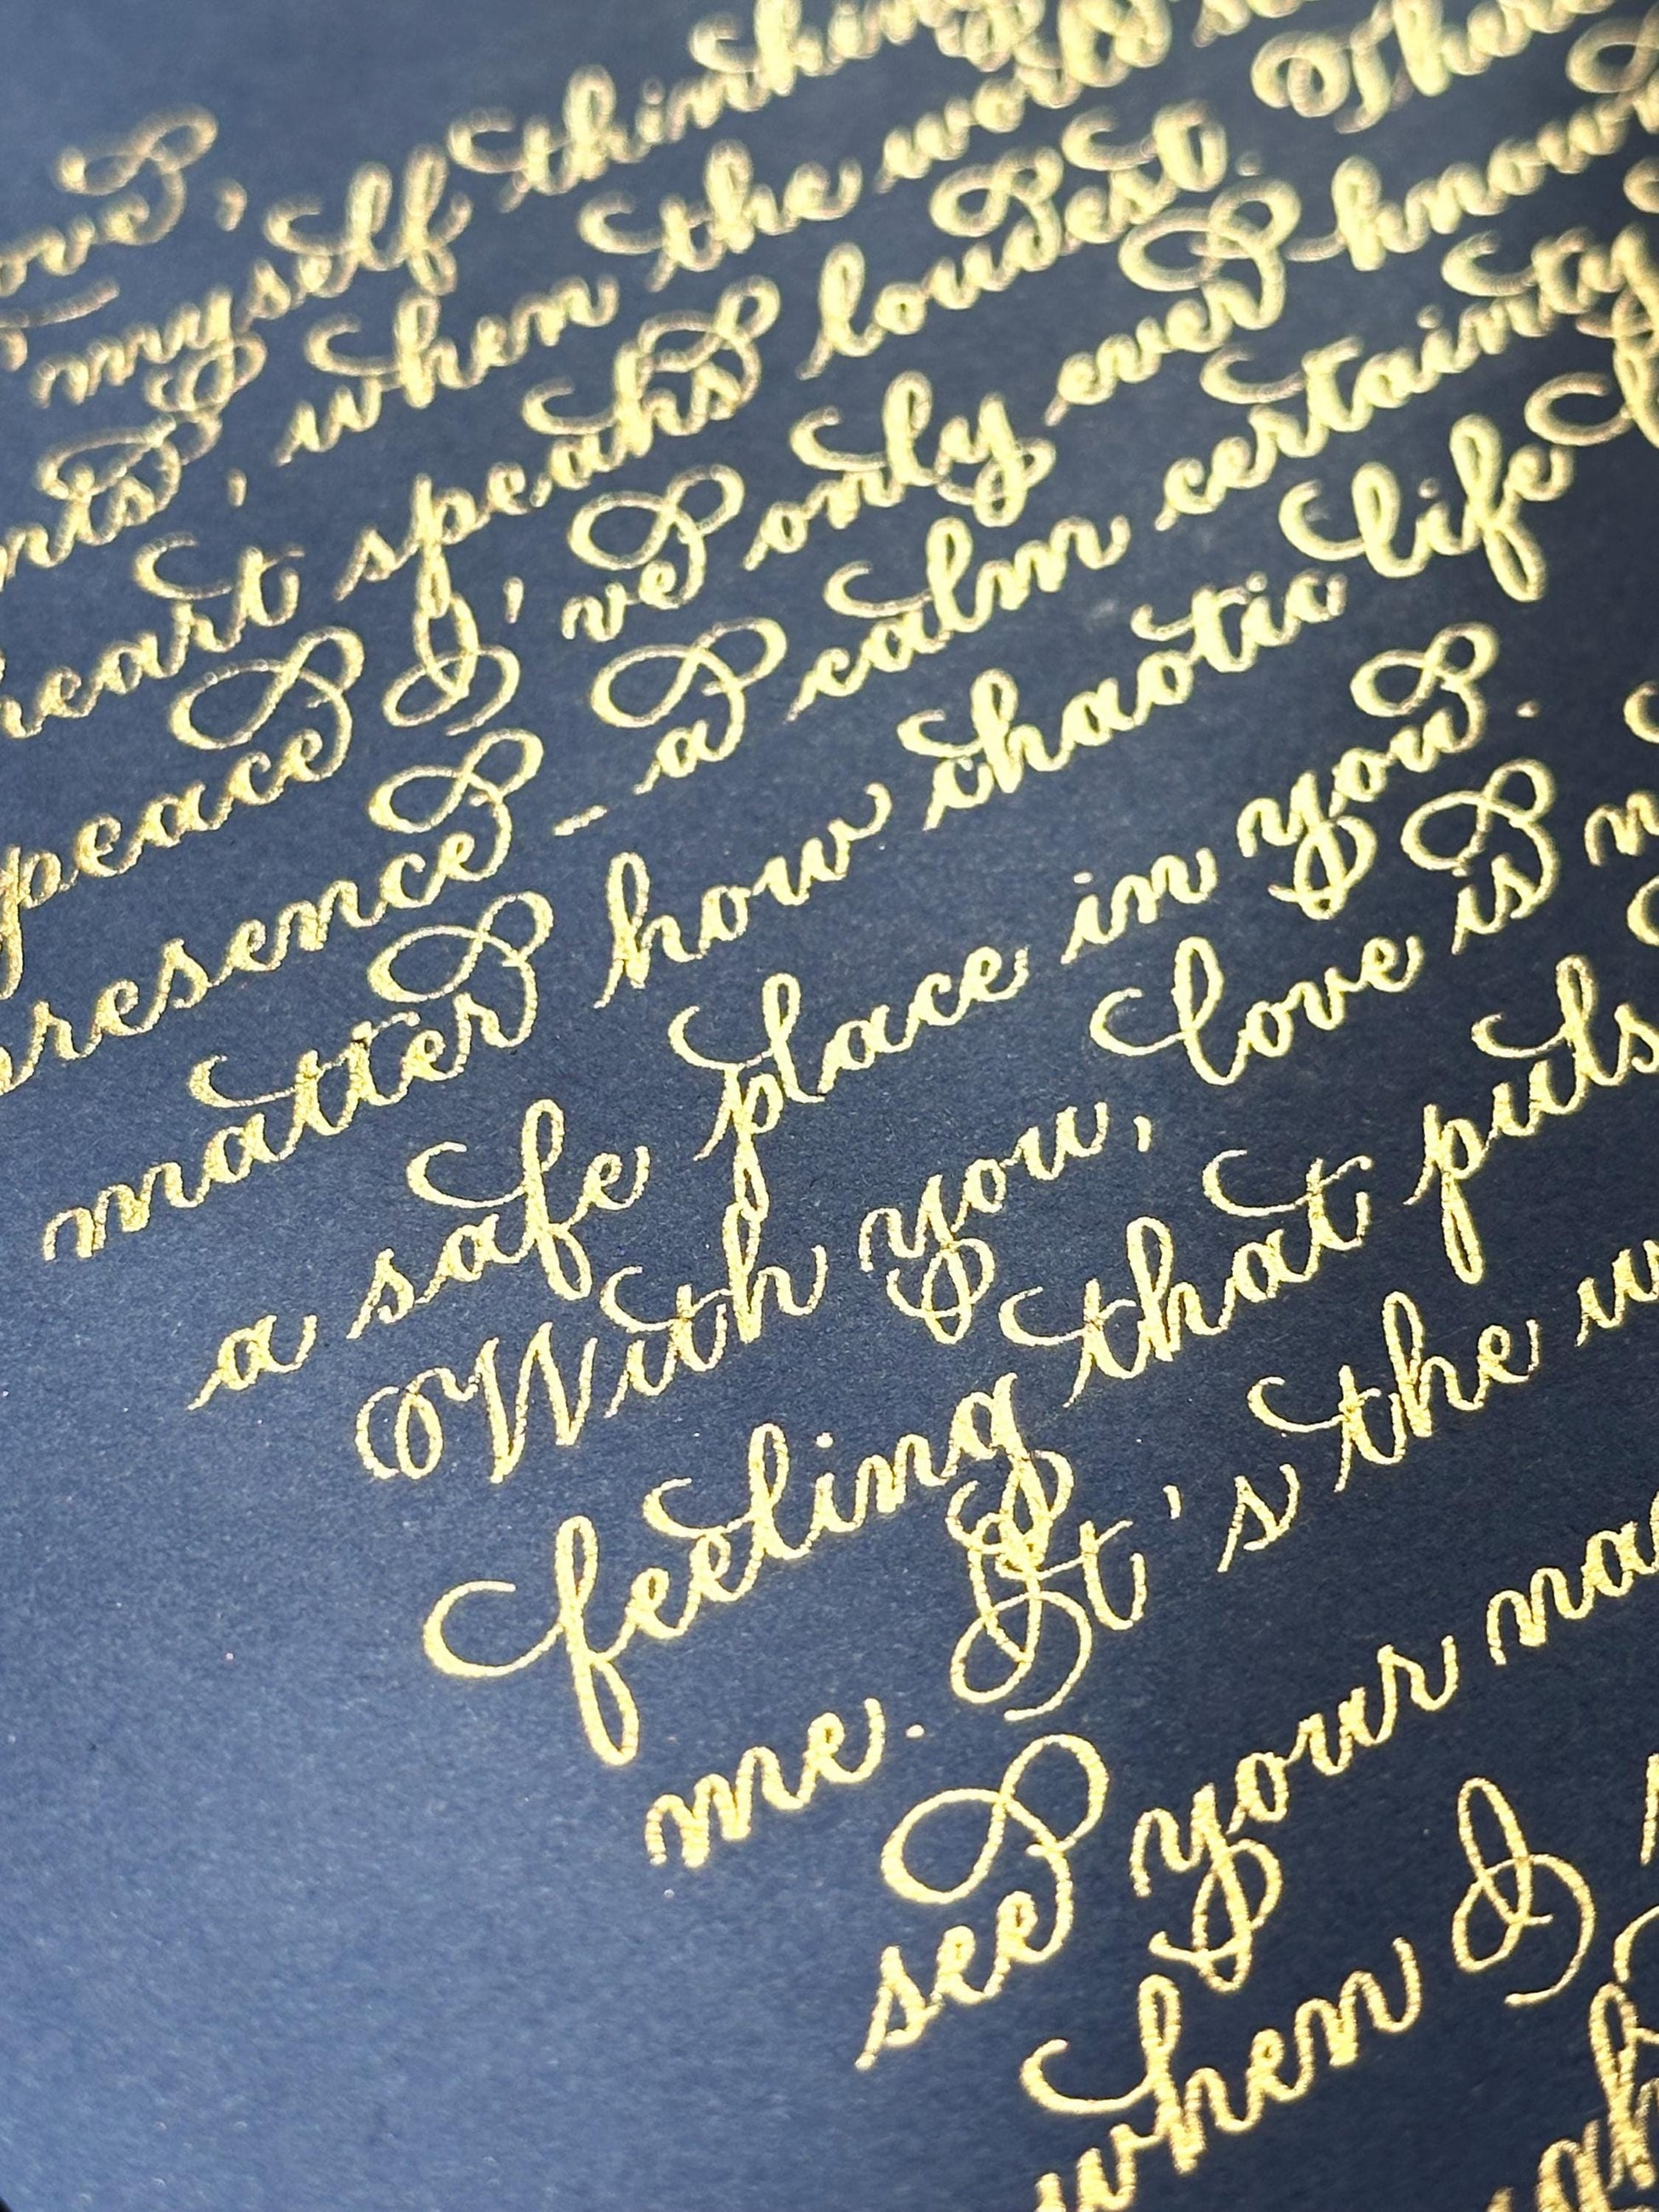 ove,
myself thinking
nts, when the world's
heart speaks loudest. There
peace I've only ever known
presence – a calm certainty
matter how chaotic life
a safe place in you.
With you, love is
feeling that pulls
me. It's the
see your
when I